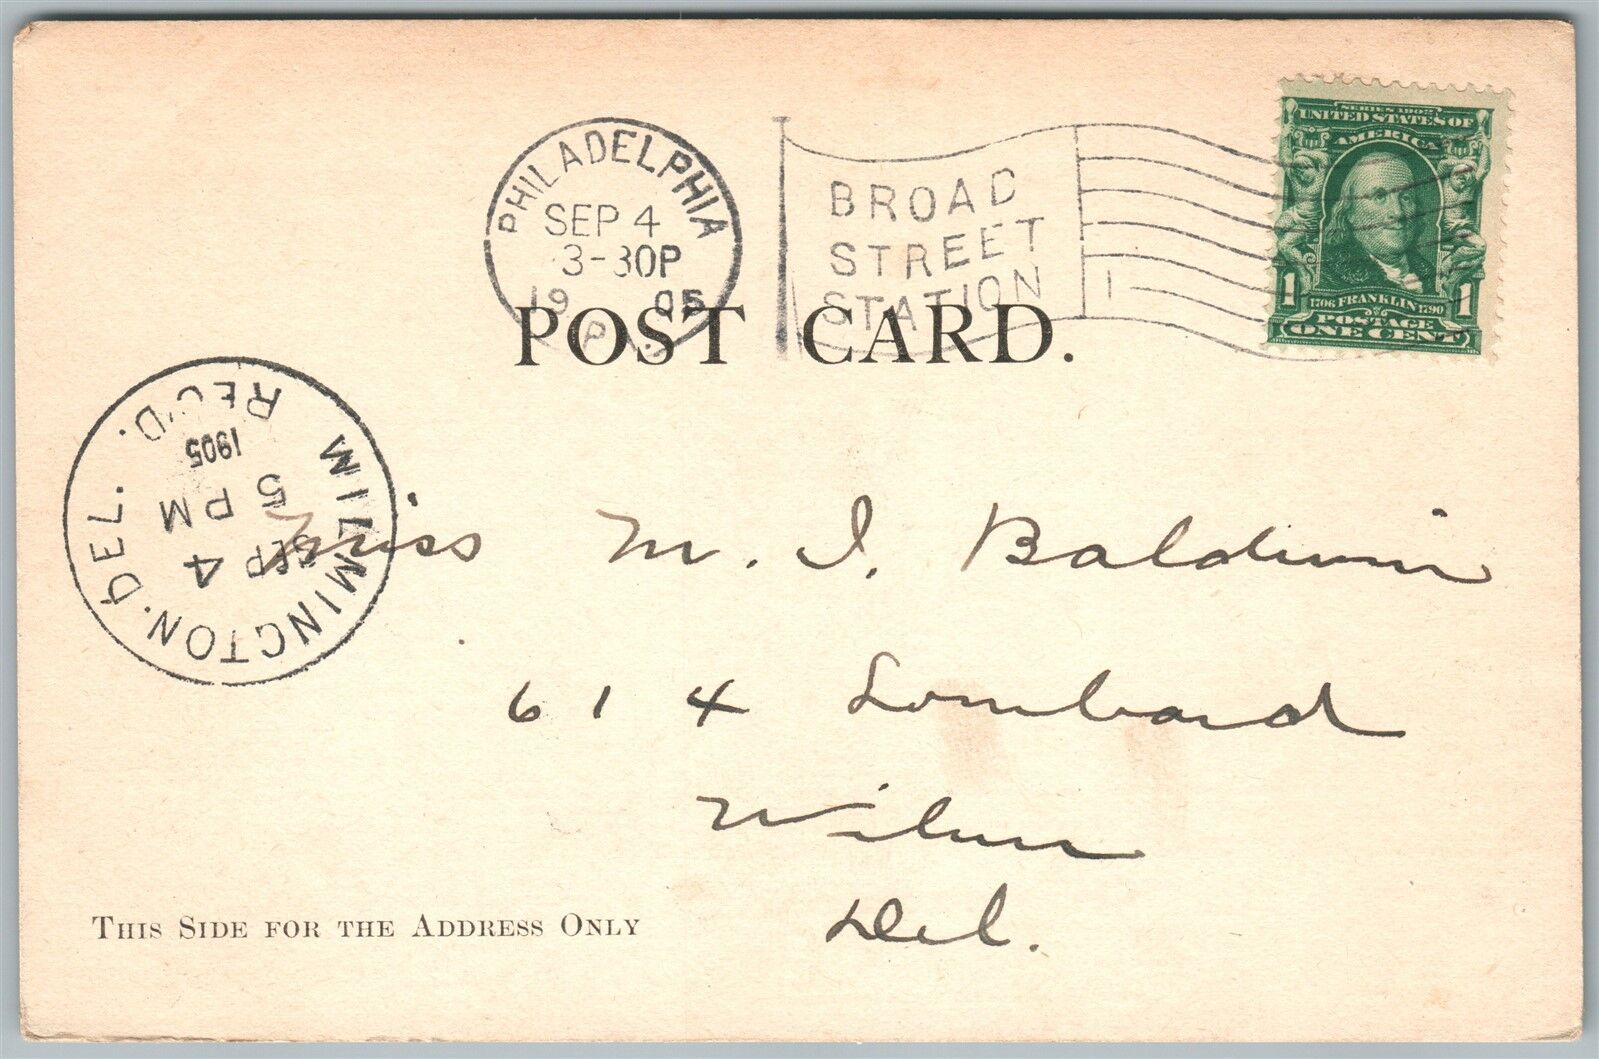 PHILADELPHIA
SEP 4
3-30P
1905
PA.
BROAD
STREET
STATION
1
SERIES 1902
UNITED STATES OF
AMERICA
1 1706 FRANKLIN 1790 1
POSTAGE
ONE CENT
POST CARD.
WILMINGTON. DEL.
REC'D.
1905
5 PM
SEP 4
Miss M. I. Baldwin
614 Lombard
Wilm
Del.
THIS SIDE FOR THE ADDRESS ONLY